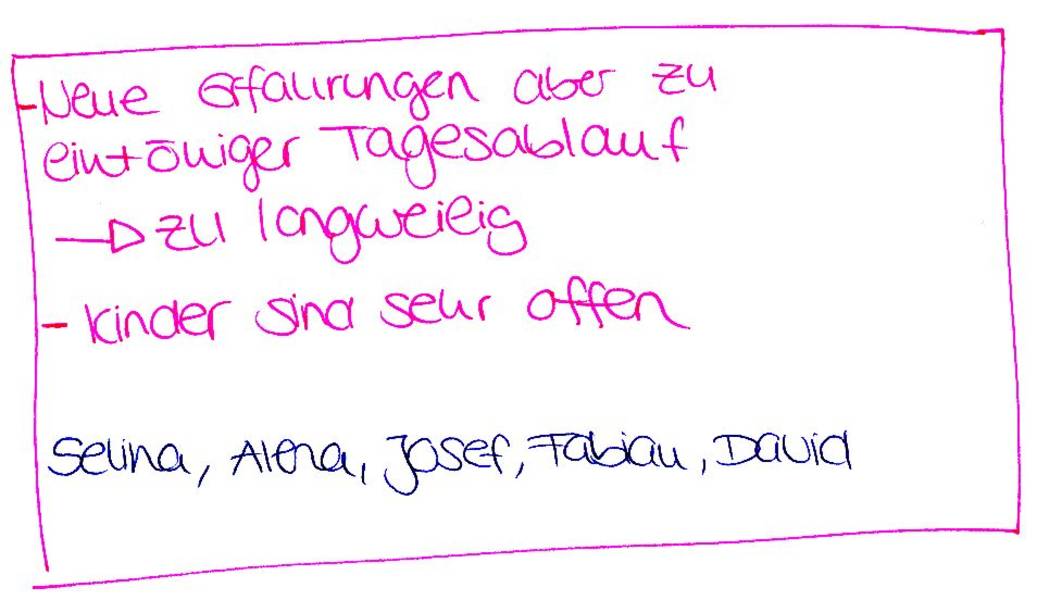 - Neue Erfahrungen aber zu
eintöniger Tagesablauf
→ zu langweilig
- Kinder sind sehr offen
Selina, Alena, Josef, Fabian, David